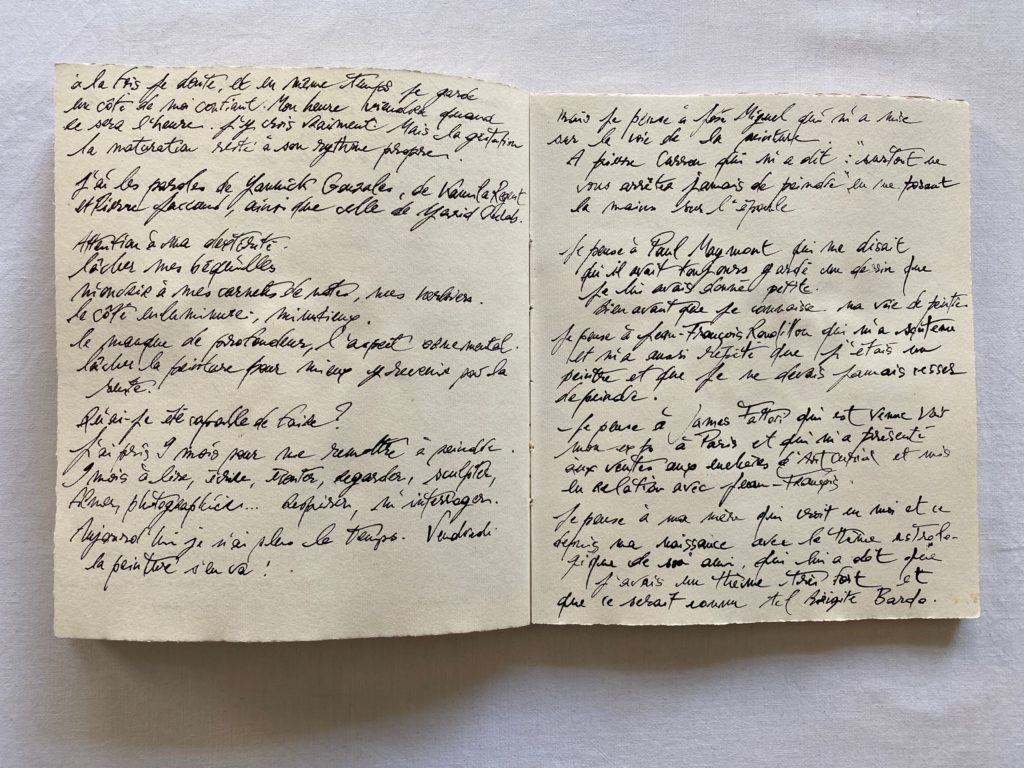 à la fois je doute, et en même temps je garde
un côté de moi confiant. Mon heure viendra quand
ce sera l'heure. J'y crois vraiment Mais la gestation
la maturation reste à son rythme propre.
J'ai les paroles de Yannick Gonzales, de
et Pierre, ainsi que celle de Yazid
Attention à ma dextérité.
lâcher mes béquilles
à mes carnets de notes, mes
le côté enluminure, minutieux.
le manque de profondeur, l'aspect ornemental.
lâcher la peinture pour mieux y revenir par la
suite.
Qu'ai-je été capable de faire?
J'ai pris 9 mois pour me remettre à peindre.
9 mois à lire, écrire, écouter, regarder, sculpter,
filmer, photographier... respirer, m'interroger.
Aujourd'hui je n'ai plus le temps. Vendredi
la peinture s'en va!
mais je pense à José Miguel qui m'a mise
sur la voie de la peinture.
A pierre Carron qui m'a dit: "surtout ne
vous arrêtez jamais de peindre" en me posant
la mains sur l'épaule
Je pense à Paul Maymont qui me disait
qu'il avait toujours gardé un dessin que
je lui avais donné petite.
bien avant que je connaisse ma voie de peintre
Je pense à Jean-François qui m'a soutenu
et m'a aussi répété que j'étais un
peintre et que je ne devais jamais cesser
de peindre.
Je pense à James Fattori qui est venu voir
mon expo à Paris et qui m'a présenté
aux ventes aux enchères d'Artcurial et mis
en relation avec Jean-François.
Je pense à ma mère qui croit en moi et ce
depuis ma naissance avec le thème astrolo-
gique de son ami, qui lui a dit que
j'avais un thème très fort et
que ce serait connu tel Brigite Bardo.